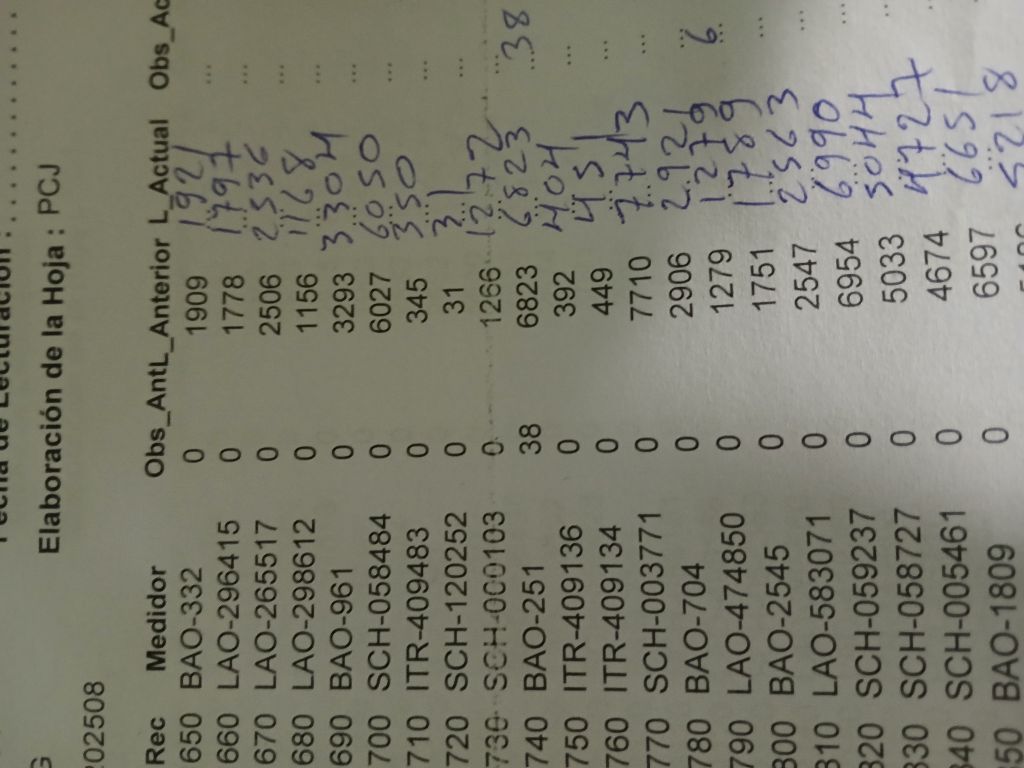 Elaboración de la Hoja : PCJ
202508
Rec Medidor Obs_AntL_Anterior L_Actual Obs_Ac
650 BAO-332 0 1909 1921 ...
660 LAO-296415 0 1778 1797 ...
670 LAO-265517 0 2506 2536 ...
680 LAO-298612 0 1156 1168 ...
690 BAO-961 0 3293 3304 ...
700 SCH-058484 0 6027 6050 ...
710 ITR-409483 0 345 350 ...
720 SCH-120252 0 31 31 ...
730 SCH-000103 0 1266 1272 ...
740 BAO-251 38 6823 6823 38
750 ITR-409136 0 392 404 ...
760 ITR-409134 0 449 451 ...
770 SCH-003771 0 7710 7743 ...
780 BAO-704 0 2906 2921 ...
790 LAO-474850 0 1279 1279 6
800 BAO-2545 0 1751 1789 ...
810 LAO-583071 0 2547 2563 ...
820 SCH-059237 0 6954 6990 ...
830 SCH-058727 0 5033 5044
840 SCH-005461 0 4674 4727
850 BAO-1809 0 6597 6651
5218